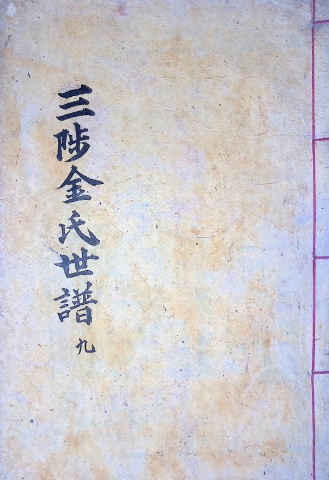 三陟金氏世譜
九